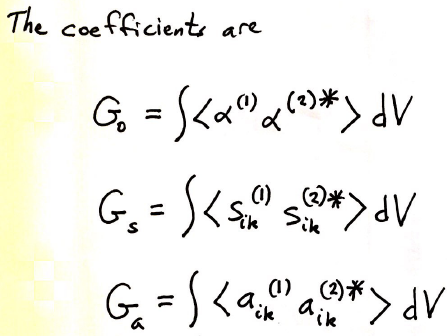 The coefficients are
G₀ = ∫<α⁽¹⁾ α⁽²⁾*> dV
Gₛ = ∫<sᵢₖ⁽¹⁾ sᵢₖ⁽²⁾*> dV
Gₐ = ∫<aᵢₖ⁽¹⁾ aᵢₖ⁽²⁾*> dV